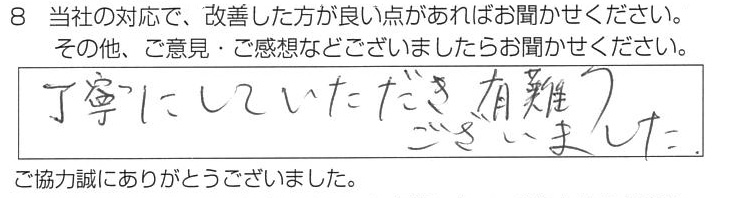 8 当社の対応で、改善した方が良い点があればお聞かせください。
その他、ご意見・ご感想などございましたらお聞かせください。
丁寧にしていただき有難う
ございました.
ご協力誠にありがとうございました。